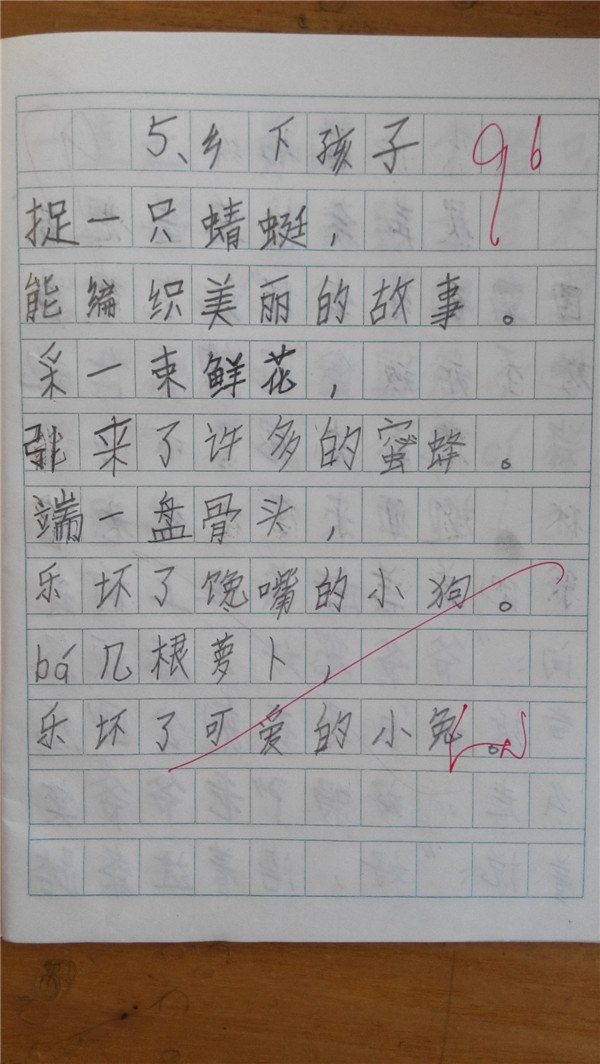 5、乡下孩子 96
捉一只蜻蜓，
能编织美丽的故事。
采一束鲜花，
引来了许多的蜜蜂。
端一盘骨头，
乐坏了馋嘴的小狗。
bá几根萝卜，
乐坏了可爱的小兔。